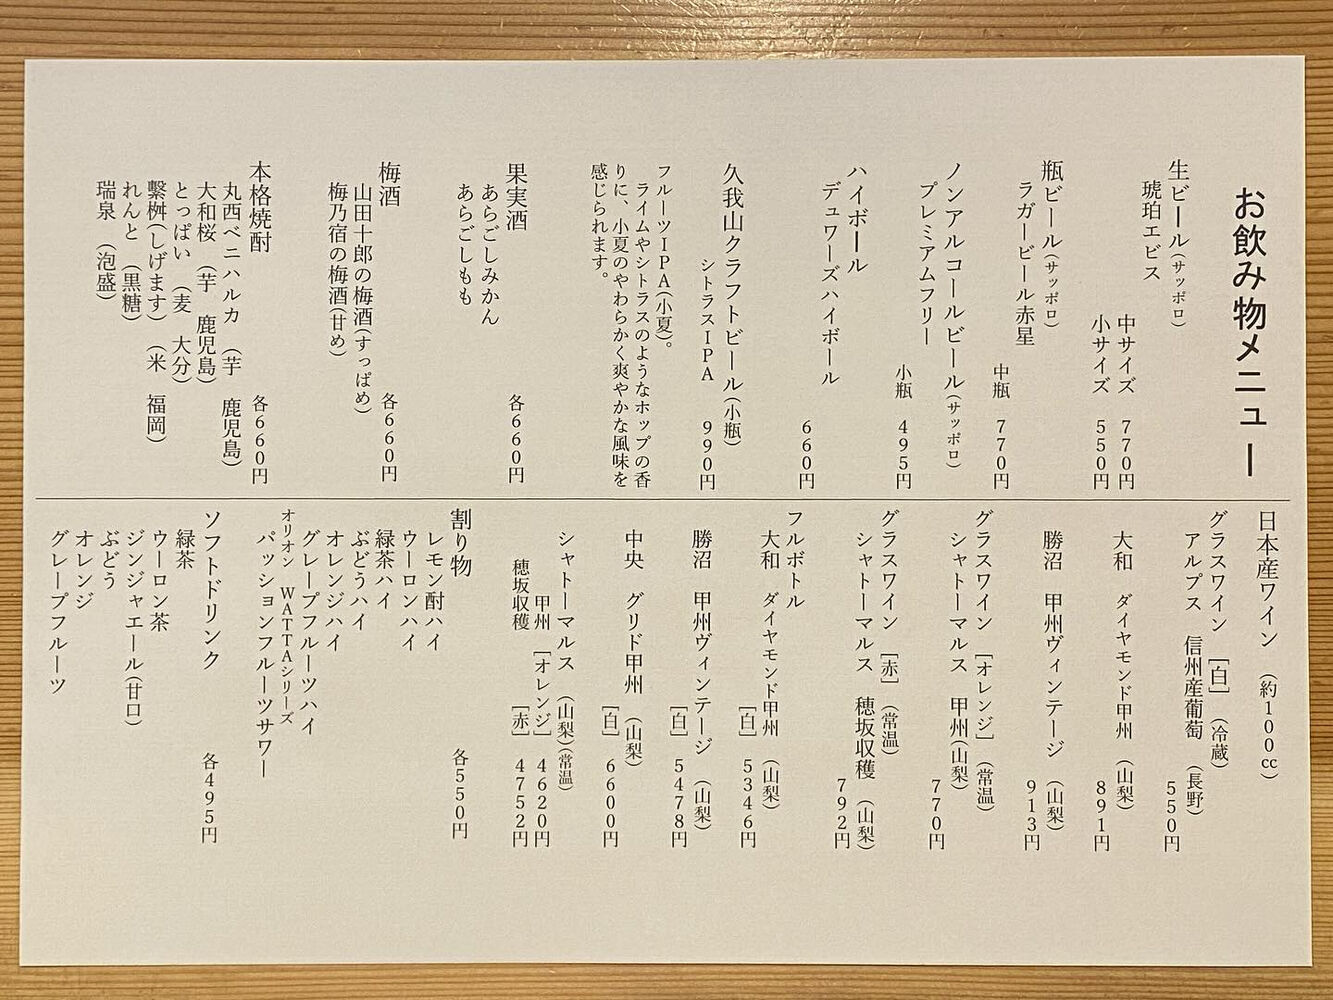 お飲み物メニュー
生ビール(サッポロ)
琥珀エビス
中サイズ 770円
小サイズ 550円
瓶ビール(サッポロ)
ラガービール赤星
中瓶 770円
ノンアルコールビール(サッポロ)
プレミアムフリー
小瓶 495円
ハイボール
デュワーズハイボール
660円
久我山クラフトビール(小瓶)
シトラスIPA 990円
フルーツIPA(小夏)。
ライムやシトラスのようなホップの香
りに、小夏のやわらかく爽やかな風味を
感じられます。
果実酒 各660円
あらごしみかん
あらごしもも
梅酒 各660円
山田十郎の梅酒(すっぱめ)
梅乃宿の梅酒(甘め)
本格焼酎 各660円
丸西ベニハルカ (芋 鹿児島)
大和桜 (芋 鹿児島)
とっぱい (麦 大分)
繋桝(しげます) (米 福岡)
れんと (黒糖)
瑞泉 (泡盛)
日本産ワイン (約100cc)
グラスワイン [白] (冷蔵)
アルプス 信州産葡萄 (長野)
550円
大和 ダイヤモンド甲州 (山梨)
891円
勝沼 甲州ヴィンテージ (山梨)
913円
グラスワイン [オレンジ] (常温)
シャトーマルス 甲州(山梨)
770円
グラスワイン [赤] (常温)
シャトーマルス 穂坂収穫 (山梨)
792円
フルボトル
大和 ダイヤモンド甲州 (山梨)
[白] 5346円
勝沼 甲州ヴィンテージ (山梨)
[白] 5478円
中央 グリド甲州 (山梨)
[白] 6600円
シャトーマルス (山梨)(常温)
甲州 [オレンジ] 4620円
穂坂収穫 [赤] 4752円
割り物 各550円
レモン酎ハイ
ウーロンハイ
緑茶ハイ
ぶどうハイ
オレンジハイ
グレープフルーツハイ
オリオン WATTAシリーズ
パッションフルーツサワー
ソフトドリンク 各495円
緑茶
ウーロン茶
ジンジャエール(甘口)
ぶどう
オレンジ
グレープフルーツ